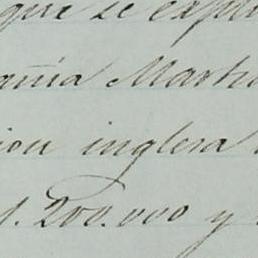 que se explo
añia Marti
ion inglesa
1.200.000 y